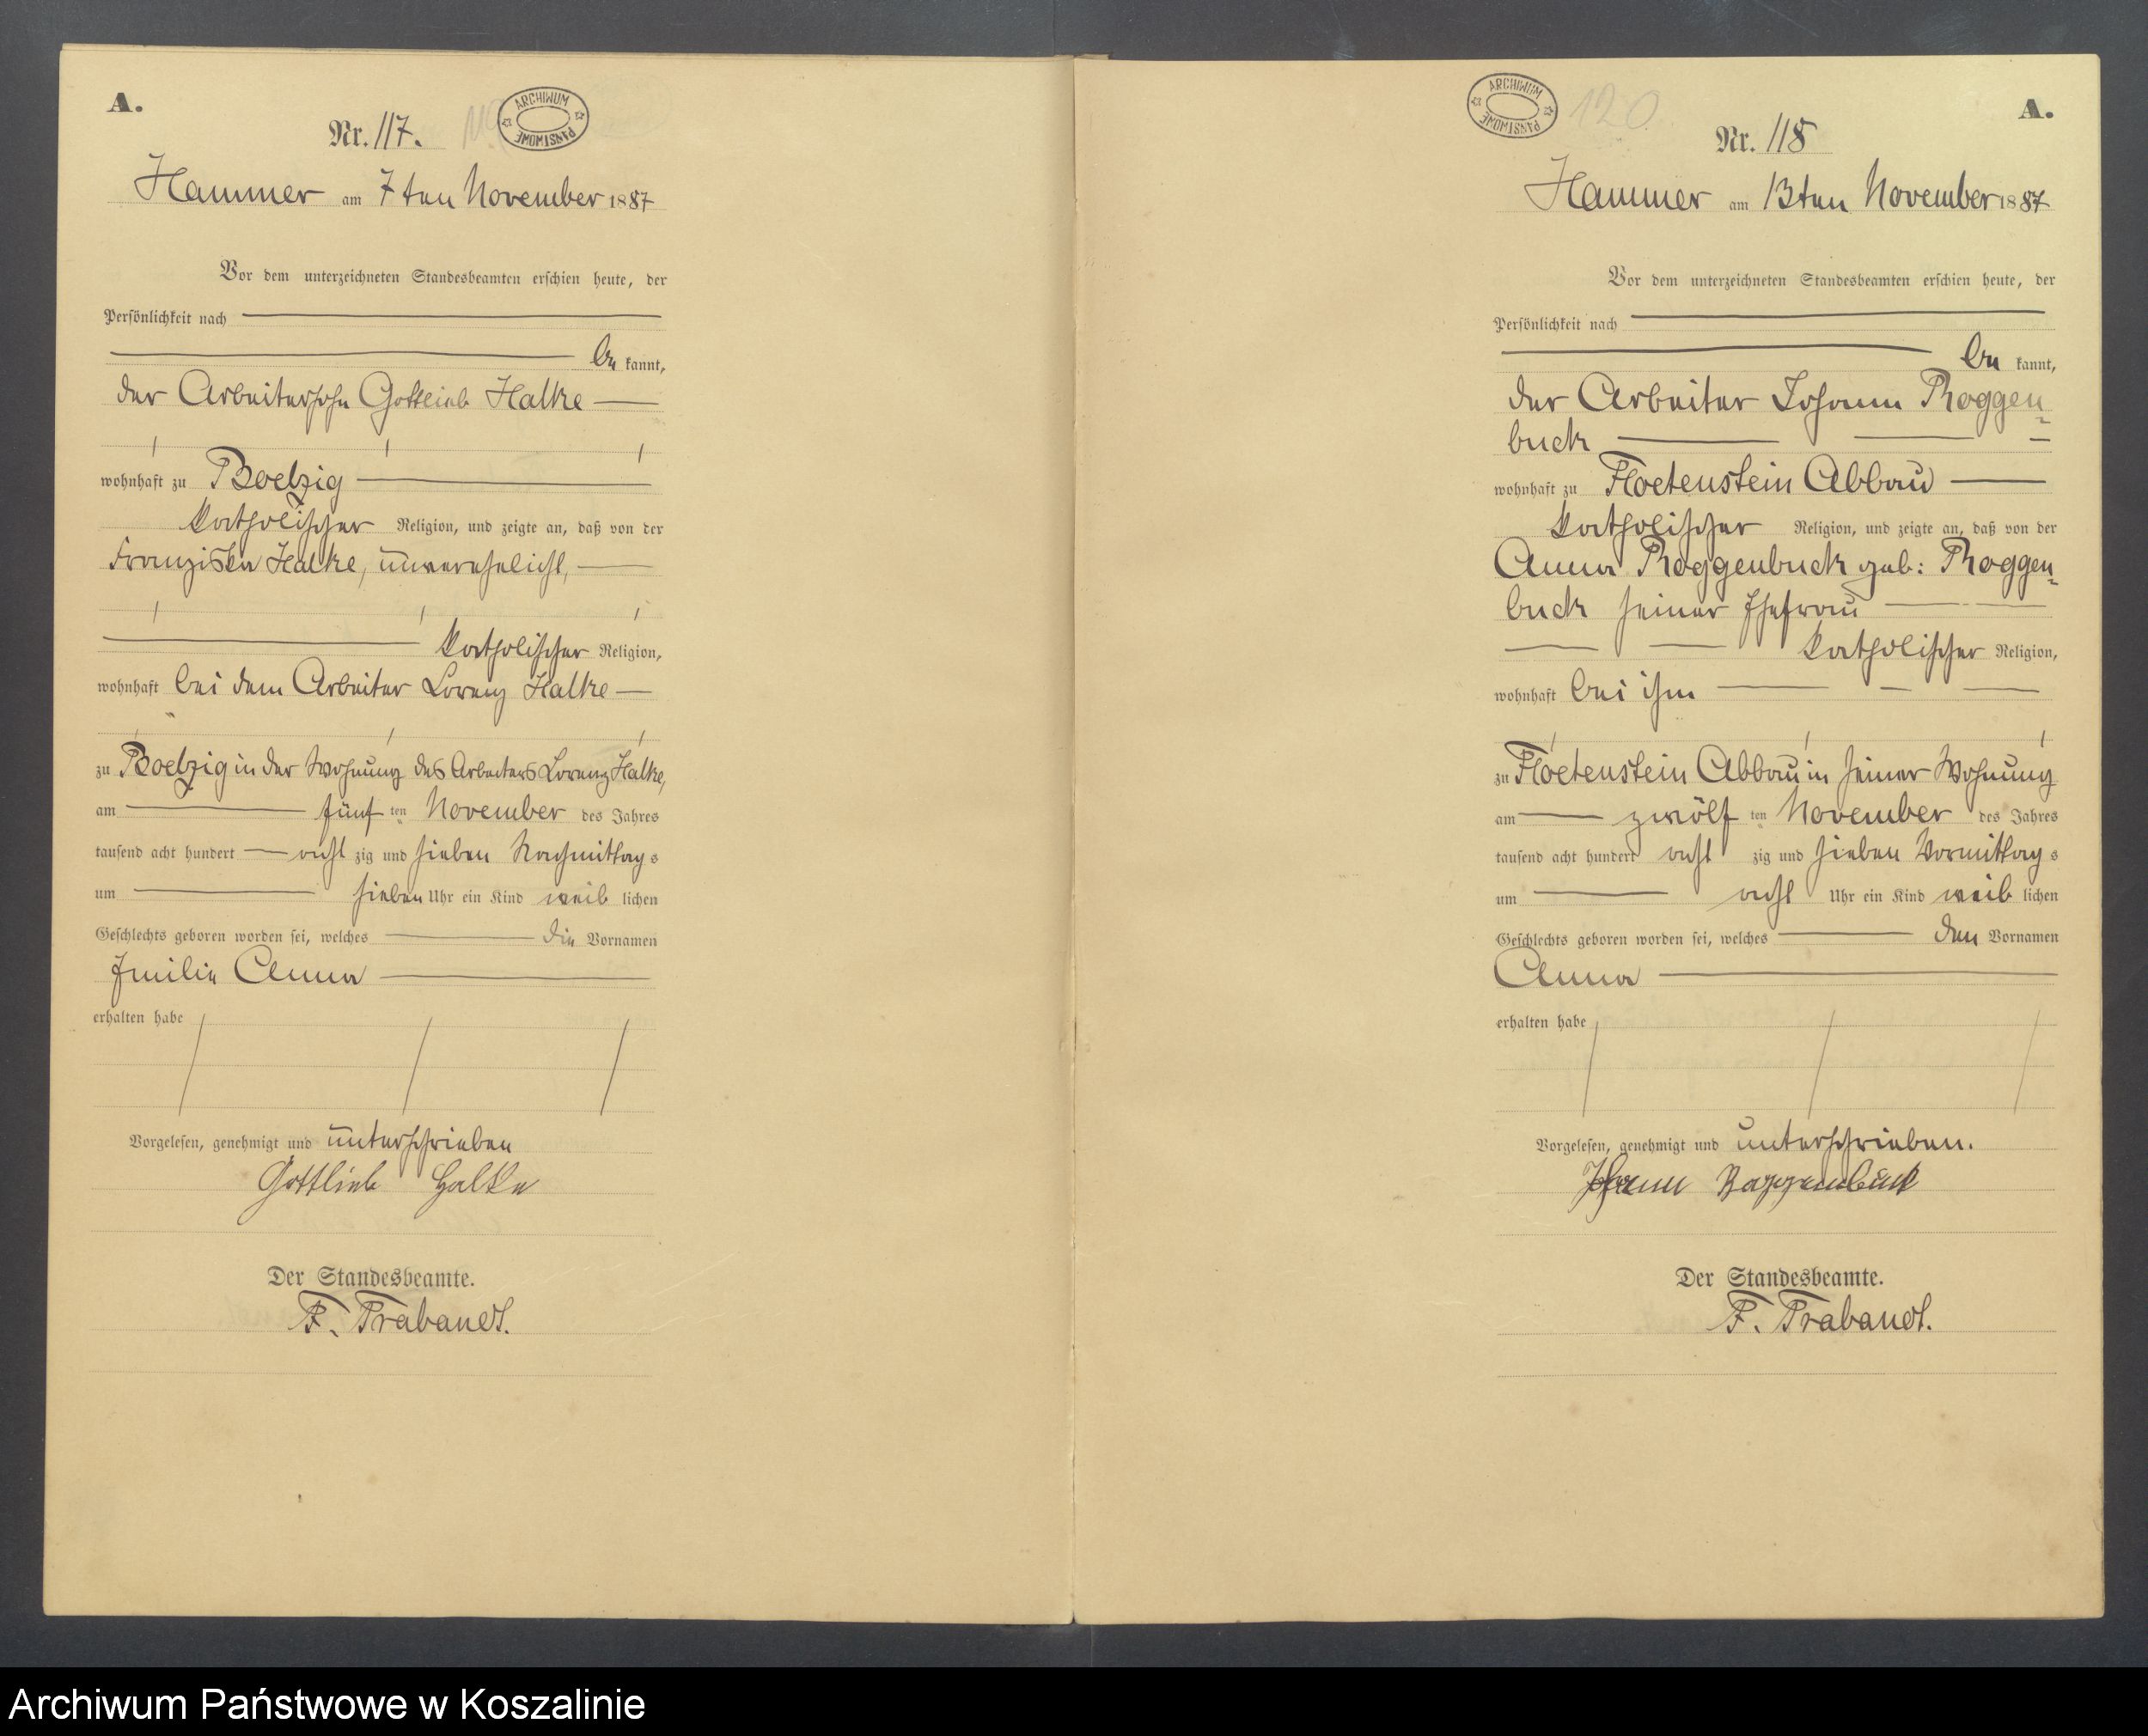 A.
Nr. 117.
ARCHIWUM PAŃSTWOWE
Hammer am 7ten November 1887
Vor dem unterzeichneten Standesbeamten erschien heute, der
Persönlichkeit nach
be kannt,
der Arbeitersohn Gottlieb Halke
wohnhaft zu Boelzig
katholischer Religion, und zeigte an, daß von der
Franziska Halke, unverehelicht,
katholischer Religion,
wohnhaft bei dem Arbeiter Lorenz Halke
zu Boelzig in der Wohnung des Arbeiters Lorenz Halke,
am fünf ten November des Jahres
tausend acht hundert acht zig und sieben Nachmittag s
um sieben Uhr ein Kind weib lichen
Geschlechts geboren worden sei, welches die Vornamen
Emilie Anna
erhalten habe
Vorgelesen, genehmigt und unterschrieben
Gottlieb Halke
Der Standesbeamte.
F. Trabandt.
ARCHIWUM PAŃSTWOWE
120
A.
Nr. 118
Hammer am 13ten November 1887
Vor dem unterzeichneten Standesbeamten erschien heute, der
Persönlichkeit nach
be kannt,
der Arbeiter Johann Roggen-
buck
wohnhaft zu Floetenstein Abbau
katholischer Religion, und zeigte an, daß von der
Anna Roggenbuck geb: Roggen-
buck seiner Ehefrau
katholischer Religion,
wohnhaft bei ihm
zu Floetenstein Abbau in seiner Wohnung
am zwölf ten November des Jahres
tausend acht hundert acht zig und sieben Vormittag s
um acht Uhr ein Kind weib lichen
Geschlechts geboren worden sei, welches den Vornamen
Anna
erhalten habe
Vorgelesen, genehmigt und unterschrieben.
Johann Roggenbuck
Der Standesbeamte.
F. Trabandt.
Archiwum Państwowe w Koszalinie